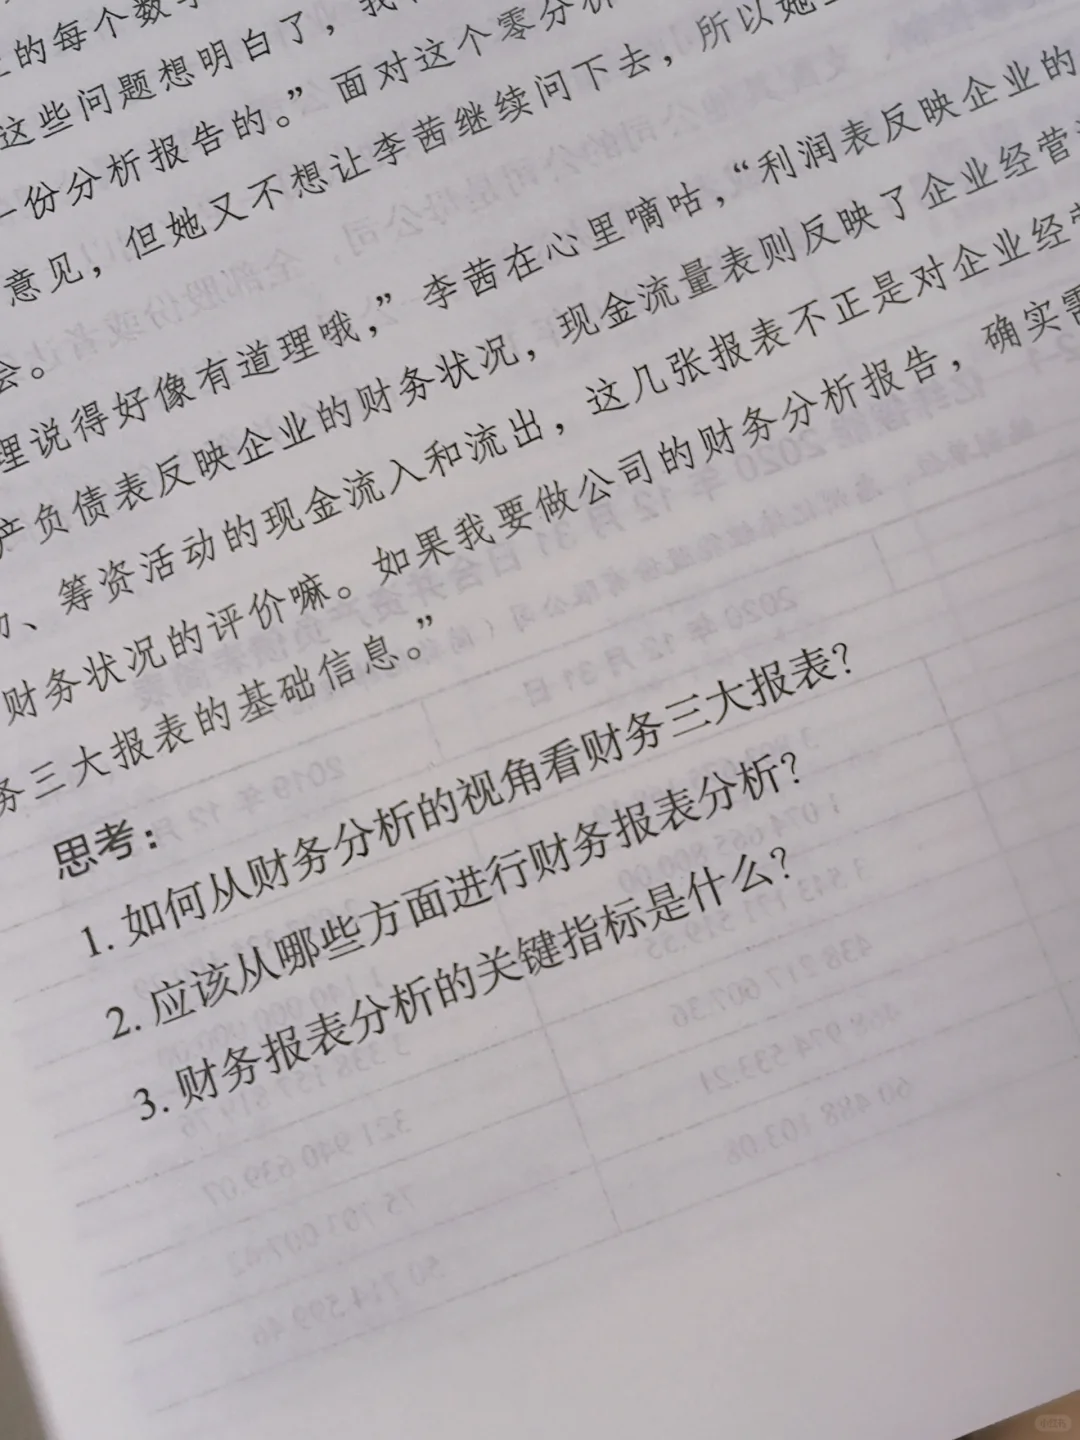 的每个数字
这些问题想明白了，我
一份分析报告的。”面对这个零分析
意见，但她又不想让李茜继续问下去，所以她
会。
理说得好像有道理哦，”李茜在心里嘀咕，“利润表反映企业的
产负债表反映企业的财务状况，现金流量表则反映了企业经营
、筹资活动的现金流入和流出，这几张报表不正是对企业经营
财务状况的评价嘛。如果我要做公司的财务分析报告，确实需
务三大报表的基础信息。”
思考：
1. 如何从财务分析的视角看财务三大报表？
2. 应该从哪些方面进行财务报表分析？
3. 财务报表分析的关键指标是什么？
小红书